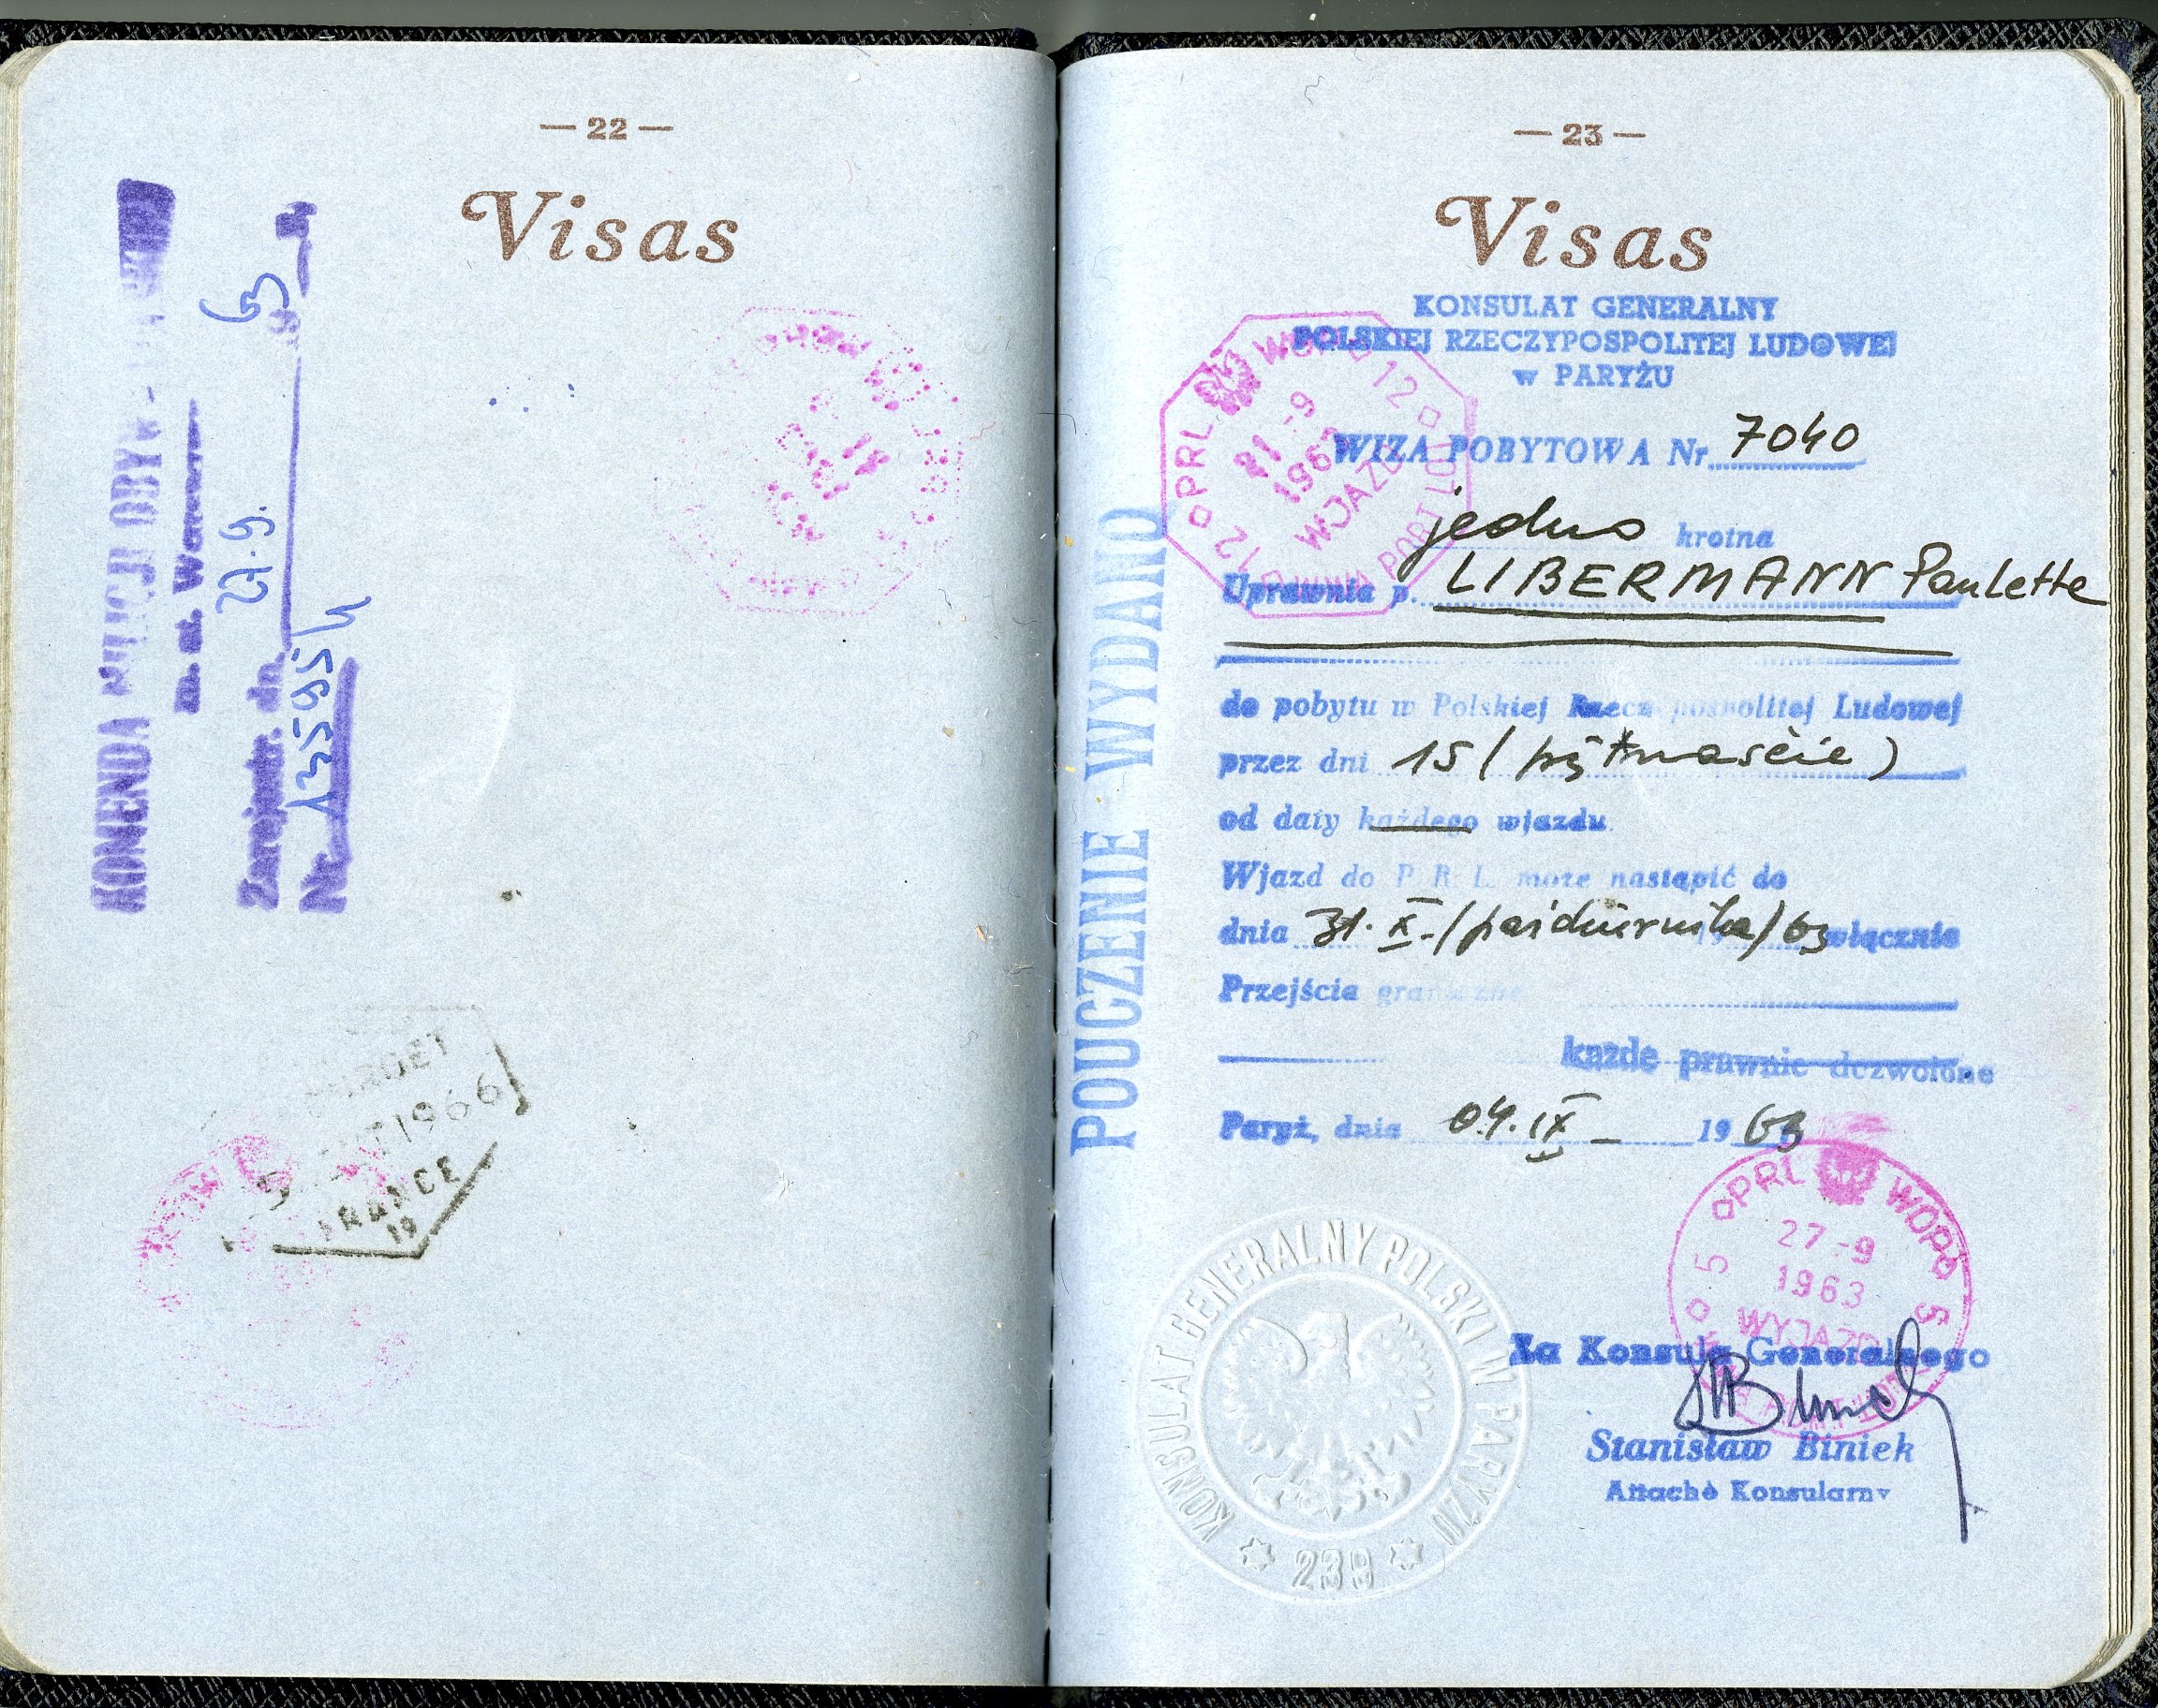 — 22 —
Visas
KOMENDA MILICJI OBYW.
m. st.
63
Zarejestr. dn. 27.9.
Nr 13595/4
1966
FRANCE
19
— 23 —
Visas
KONSULAT GENERALNY
POLSKIEJ RZECZYPOSPOLITEJ LUDOWEJ
w PARYŻU
PRL WOP 12
21 -9
1963
WJAZD
12
WIZA POBYTOWA Nr 7040
jedno krotna
Uprawnia p. LIBERMANN Paulette
do pobytu w Polskiej Rzeczypospolitej Ludowej
przez dni 15 (piętnaście)
od daty każdego wjazdu
Wjazd do P R L może nastąpić do
dnia 31. X. /października/ 63 włącznie
Przejścia graniczne
każde prawnie dozwolone
Paryż, dnia 04. IX 1963
POUCZENIE WYDANO
PRL WOP 5
27 -9
1963
WYJAZD
5
Za Konsula Generalnego
Stanisław Biniek
Attachè Konsularny
KONSULAT GENERALNY POLSKI W PARYŻU
239